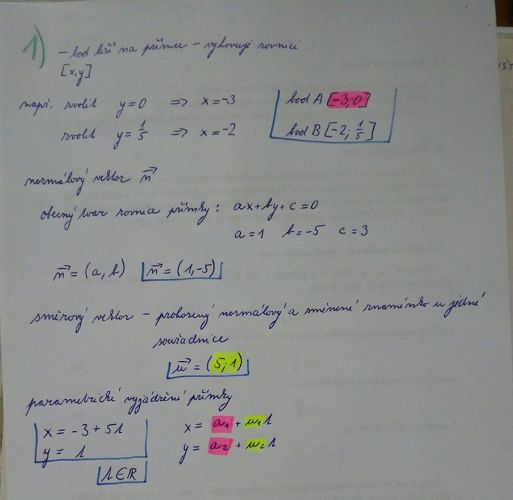 1)
- bod leží na přímce - vyhovuje rovnici
[x,y]
např. zvolit y=0 => x=-3
bod A [-3,0]
zvolit y=1/5 => x=-2
bod B [-2; 1/5]
normálový vektor n⃗
obecný tvar rovnice přímky: ax+by+c=0
a=1 b=-5 c=3
n⃗=(a,b) n⃗=(1,-5)
směrový vektor - prohozený normálový a změněné znaménko u jedné
souřadnice
u⃗=(5;1)
parametrické vyjádření přímky
x=-3+5t
y=t
t∈R
x=a₁+u₁t
y=a₂+u₂t